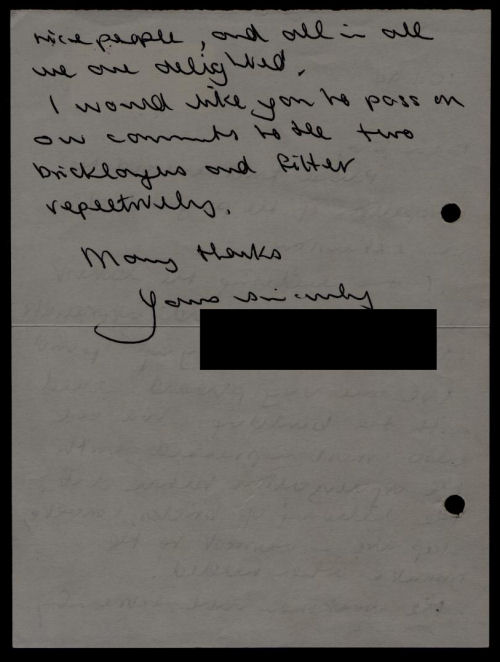 nice people, and all in all
we are delighted.
I would like you to pass on
our comments to the two
bricklayers and fitter
repectively.
Many thanks
Yours sincerely